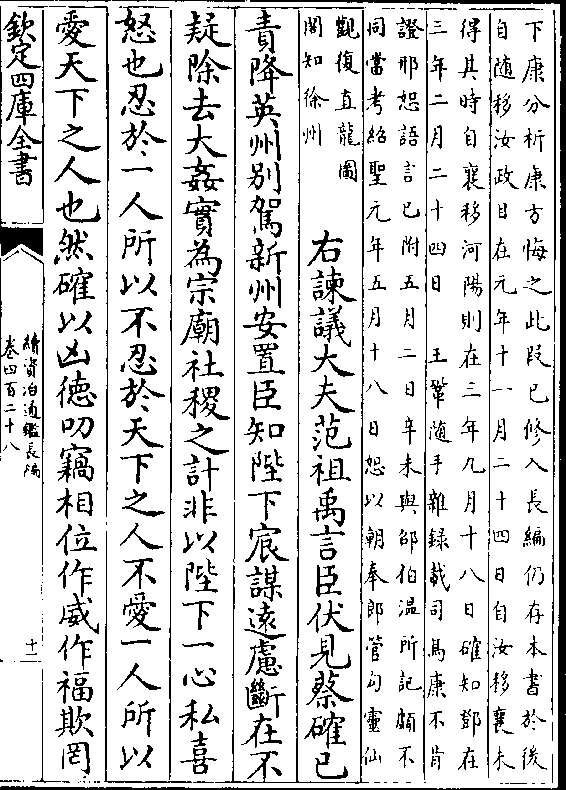 下康分析康方悔之此段已修入長編仍存本書於後
自随移汝政目在元年十一月二十四日自汝移襄未
得其時自襄移河陽則在二年九月十八日確知鄧在
三年二月二十四日　王鞏随手雜録載司馬康不肯
證邢恕語言已附五月二日辛未與邵伯温所記頗不
同當考紹聖元年五月十八日恕以朝奉郎管勾靈仙
觀復直龍圖
閣知徐州
右諫議大夫范祖禹言臣伏見蔡確已
責降英州别駕新州安置臣知陛下宸謀遠慮斷在不
疑除去大姦實為宗廟社稷之計非以陛下一心私喜
怒也忍於一人所以不忍於天下之人不愛一人所以
愛天下之人也然確以凶德叨竊相位作威作福欺罔
欽定四庫全書
續資治通鑑長編
卷四百二十八
十一